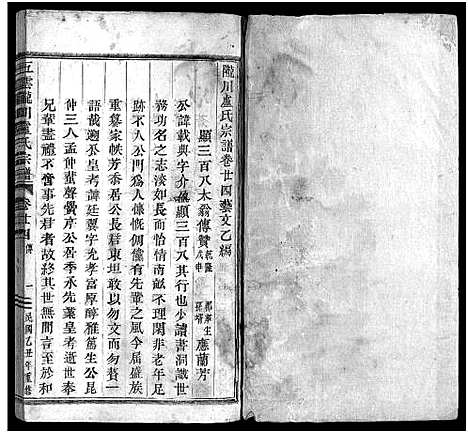 隴川盧氏宗譜卷廿四藝文乙編
顯三百八木翁傳贊 乾隆戊申 郡庠生 應蘭芳
公諱載與字介 顯三百八其行也少讀書洞識世
務功名之志淡如長而怡情南畝不理閑非老年足
跡不入公門爲人慷慨倜儻有先輩之風今屆盛族
重纂家帙芳忝居公長君東垣敢以勿文而勿贅一
語哉遡公皇考諱廷翼字允孝富厚醇雅篤生公昆
仲三人孟仲蜚聲黌序公居季永先業皇考逝世奉
兄輩盡禮不啻事先君者故終其世無間言至於和
五雲隴川盧氏宗譜 卷廿四 傳 一 民國乙丑年重修